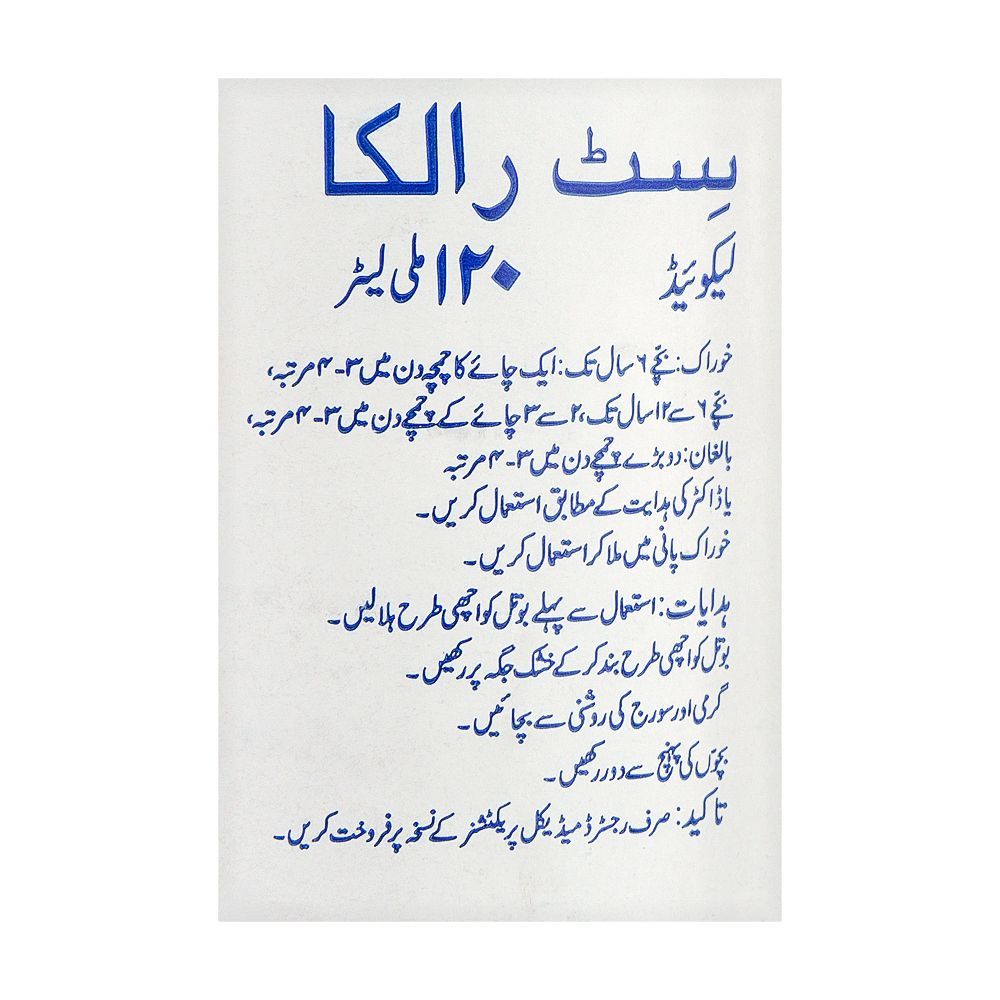 سِٹ رالکا
لیکوئیڈ ۱۲۰ ملی لیٹر
خوراک: بچّے ۶ سال تک: ایک چائے کا چمچہ دن میں ۳-۴ مرتبہ،
بچّے ۶ سے ۱۲ سال تک، ۲ سے ۳ چائے کے چمچے دن میں ۳-۴ مرتبہ،
بالغان: دو بڑے چمچے دن میں ۳-۴ مرتبہ
یا ڈاکٹر کی ہدایت کے مطابق استعمال کریں۔
خوراک پانی میں ملا کر استعمال کریں۔
ہدایات: استعمال سے پہلے بوتل کو اچھی طرح ہلالیں۔
بوتل کو اچھی طرح بند کر کے خشک جگہ پر رکھیں۔
گرمی اور سورج کی روشنی سے بچائیں۔
بچّوں کی پہنچ سے دور رکھیں۔
تاکید: صرف رجسٹرڈ میڈیکل پریکٹشنر کے نسخہ پر فروخت کریں۔